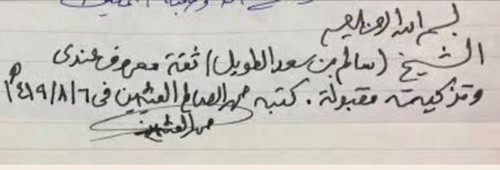 بسم الله الرحمن الرحيم
الشيخ (سالم بن سعد الطويل) ثقة معروف عندي
وتزكيته مقبولة. كتبه محمد الصالح العثيمين في ١٤١٩/٨/٦ هـ
محمد العثيمين